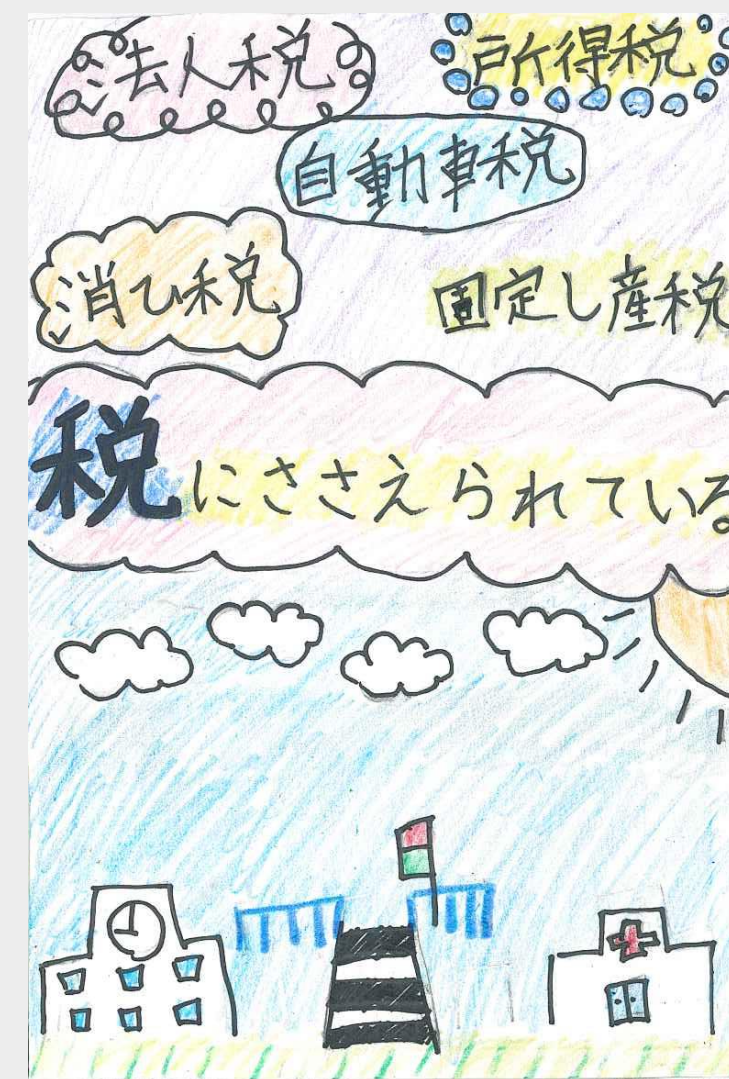 法人税
所得税
自動車税
消ひ税
固定し産税
税にささえられている